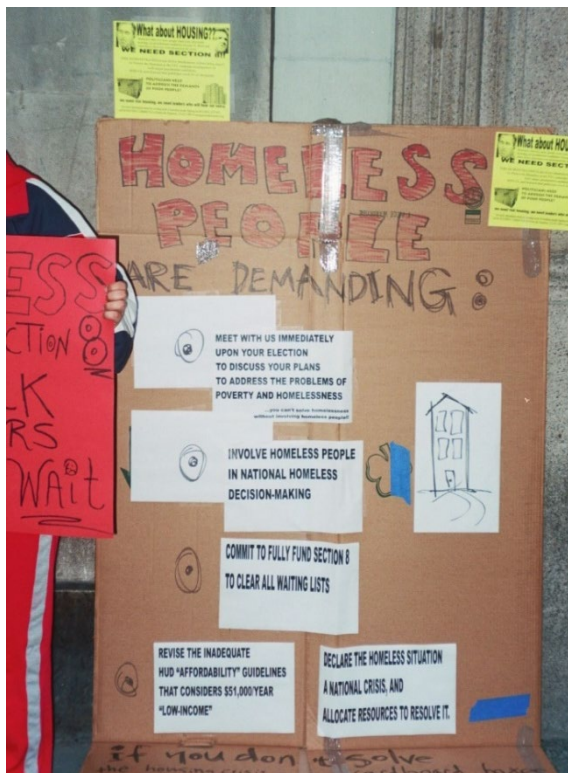 What about HOUSING??
WE NEED SECTION 8!!
What about HOU
WE NEED SECT
HOMELESS
PEOPLE
ARE DEMANDING:
ESS
CTION 8
K
RS
WAit
MEET WITH US IMMEDIATELY
UPON YOUR ELECTION
TO DISCUSS YOUR PLANS
TO ADDRESS THE PROBLEMS OF
POVERTY AND HOMELESSNESS
...you can't solve homelessness
without involving homeless people!!
INVOLVE HOMELESS PEOPLE
IN NATIONAL HOMELESS
DECISION-MAKING
COMMIT TO FULLY FUND SECTION 8
TO CLEAR ALL WAITING LISTS
REVISE THE INADEQUATE
HUD "AFFORDABILITY" GUIDELINES
THAT CONSIDERS $51,000/YEAR
"LOW-INCOME"
DECLARE THE HOMELESS SITUATION
A NATIONAL CRISIS, AND
ALLOCATE RESOURCES TO RESOLVE IT.
if you don't solve